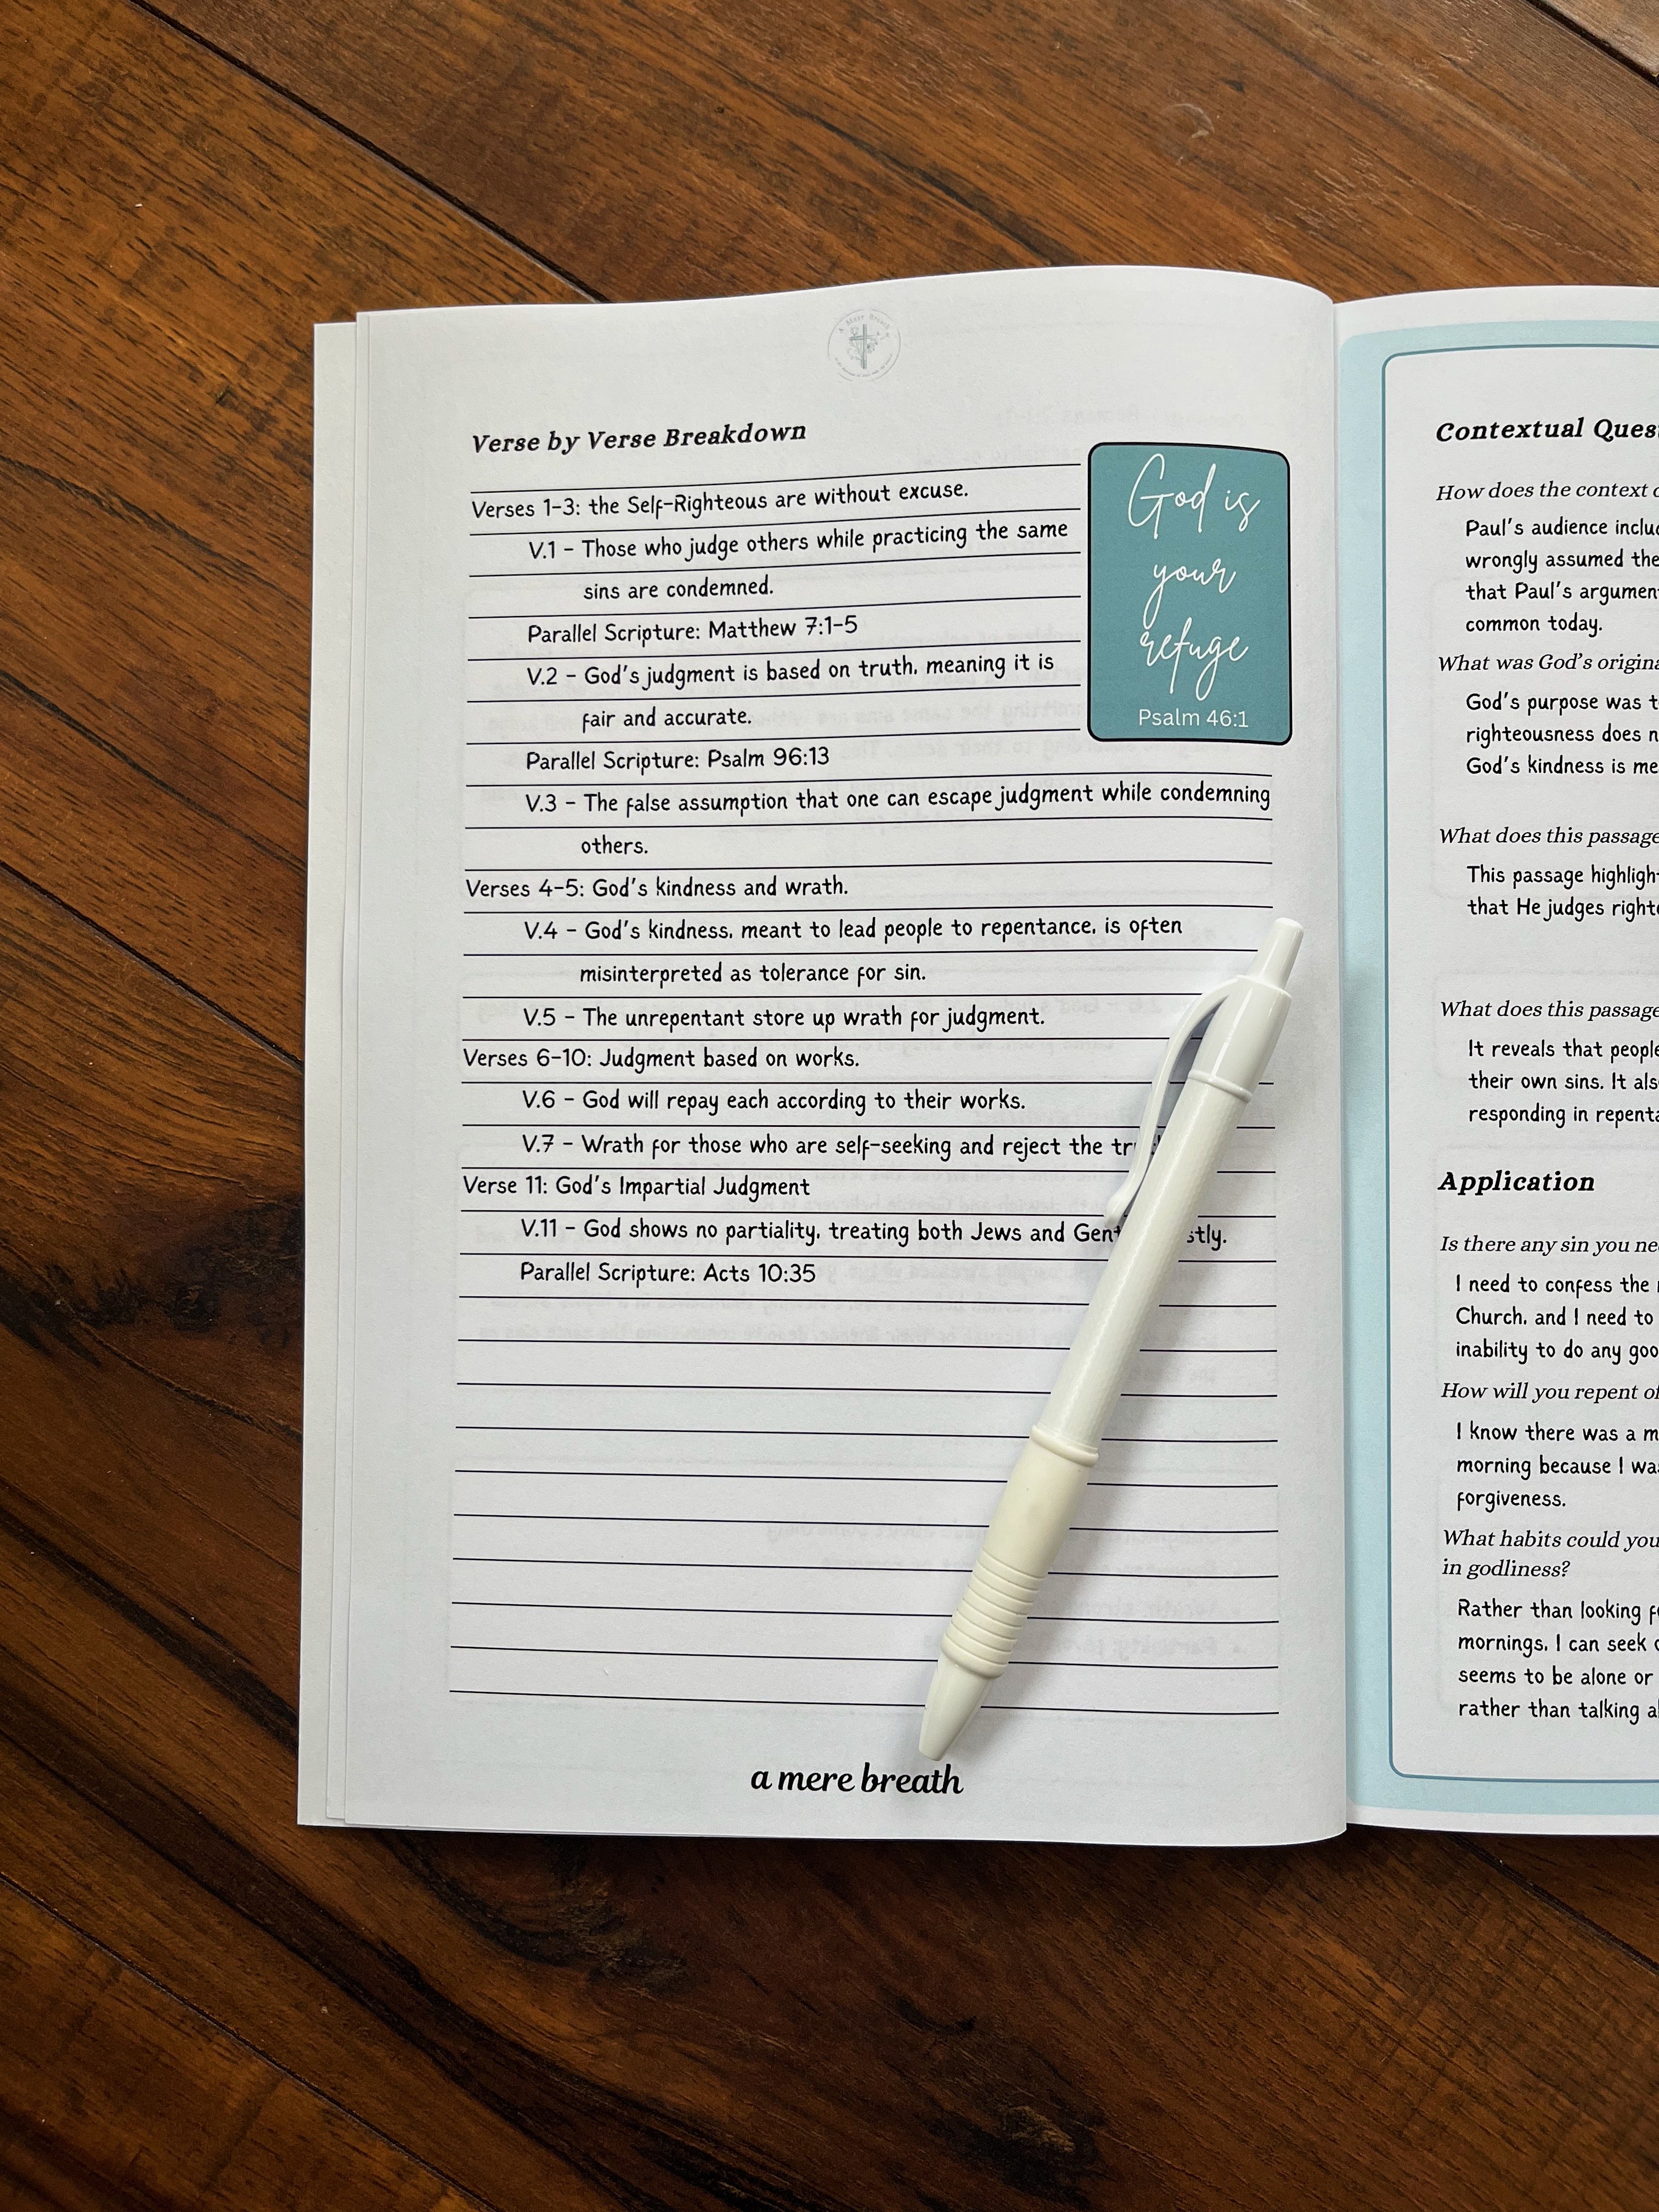 Verse by Verse Breakdown
Verses 1-3: the Self-Righteous are without excuse.
V.1 - Those who judge others while practicing the same
sins are condemned.
Parallel Scripture: Matthew 7:1-5
V.2 - God's judgment is based on truth, meaning it is
fair and accurate.
Parallel Scripture: Psalm 96:13
V.3 - The false assumption that one can escape judgment while condemning
others.
Verses 4-5: God's kindness and wrath.
V.4 - God's kindness, meant to lead people to repentance, is often
misinterpreted as tolerance for sin.
V.5 - The unrepentant store up wrath for judgment.
Verses 6-10: Judgment based on works.
V.6 - God will repay each according to their works.
V.7 - Wrath for those who are self-seeking and reject the
Verse 11: God's Impartial Judgment
V.11 - God shows no partiality, treating both Jews and
Parallel Scripture: Acts 10:35
God is
your
refuge
Psalm 46:1
a mere breath
Contextual
How does the context
Paul's audience
wrongly assumed
that Paul's
common today.
What was God's
God's purpose was
righteousness does
God's kindness is
What does this passage
This passage
that He judges
What does this passage
It reveals that
their own sins. It
responding in
Application
Is there any sin you
I need to confess the
Church, and I need to
inability to do any
How will you repent
I know there was a
morning because I
forgiveness.
What habits could you
in godliness?
Rather than looking
mornings, I can seek
seems to be alone or
rather than talking